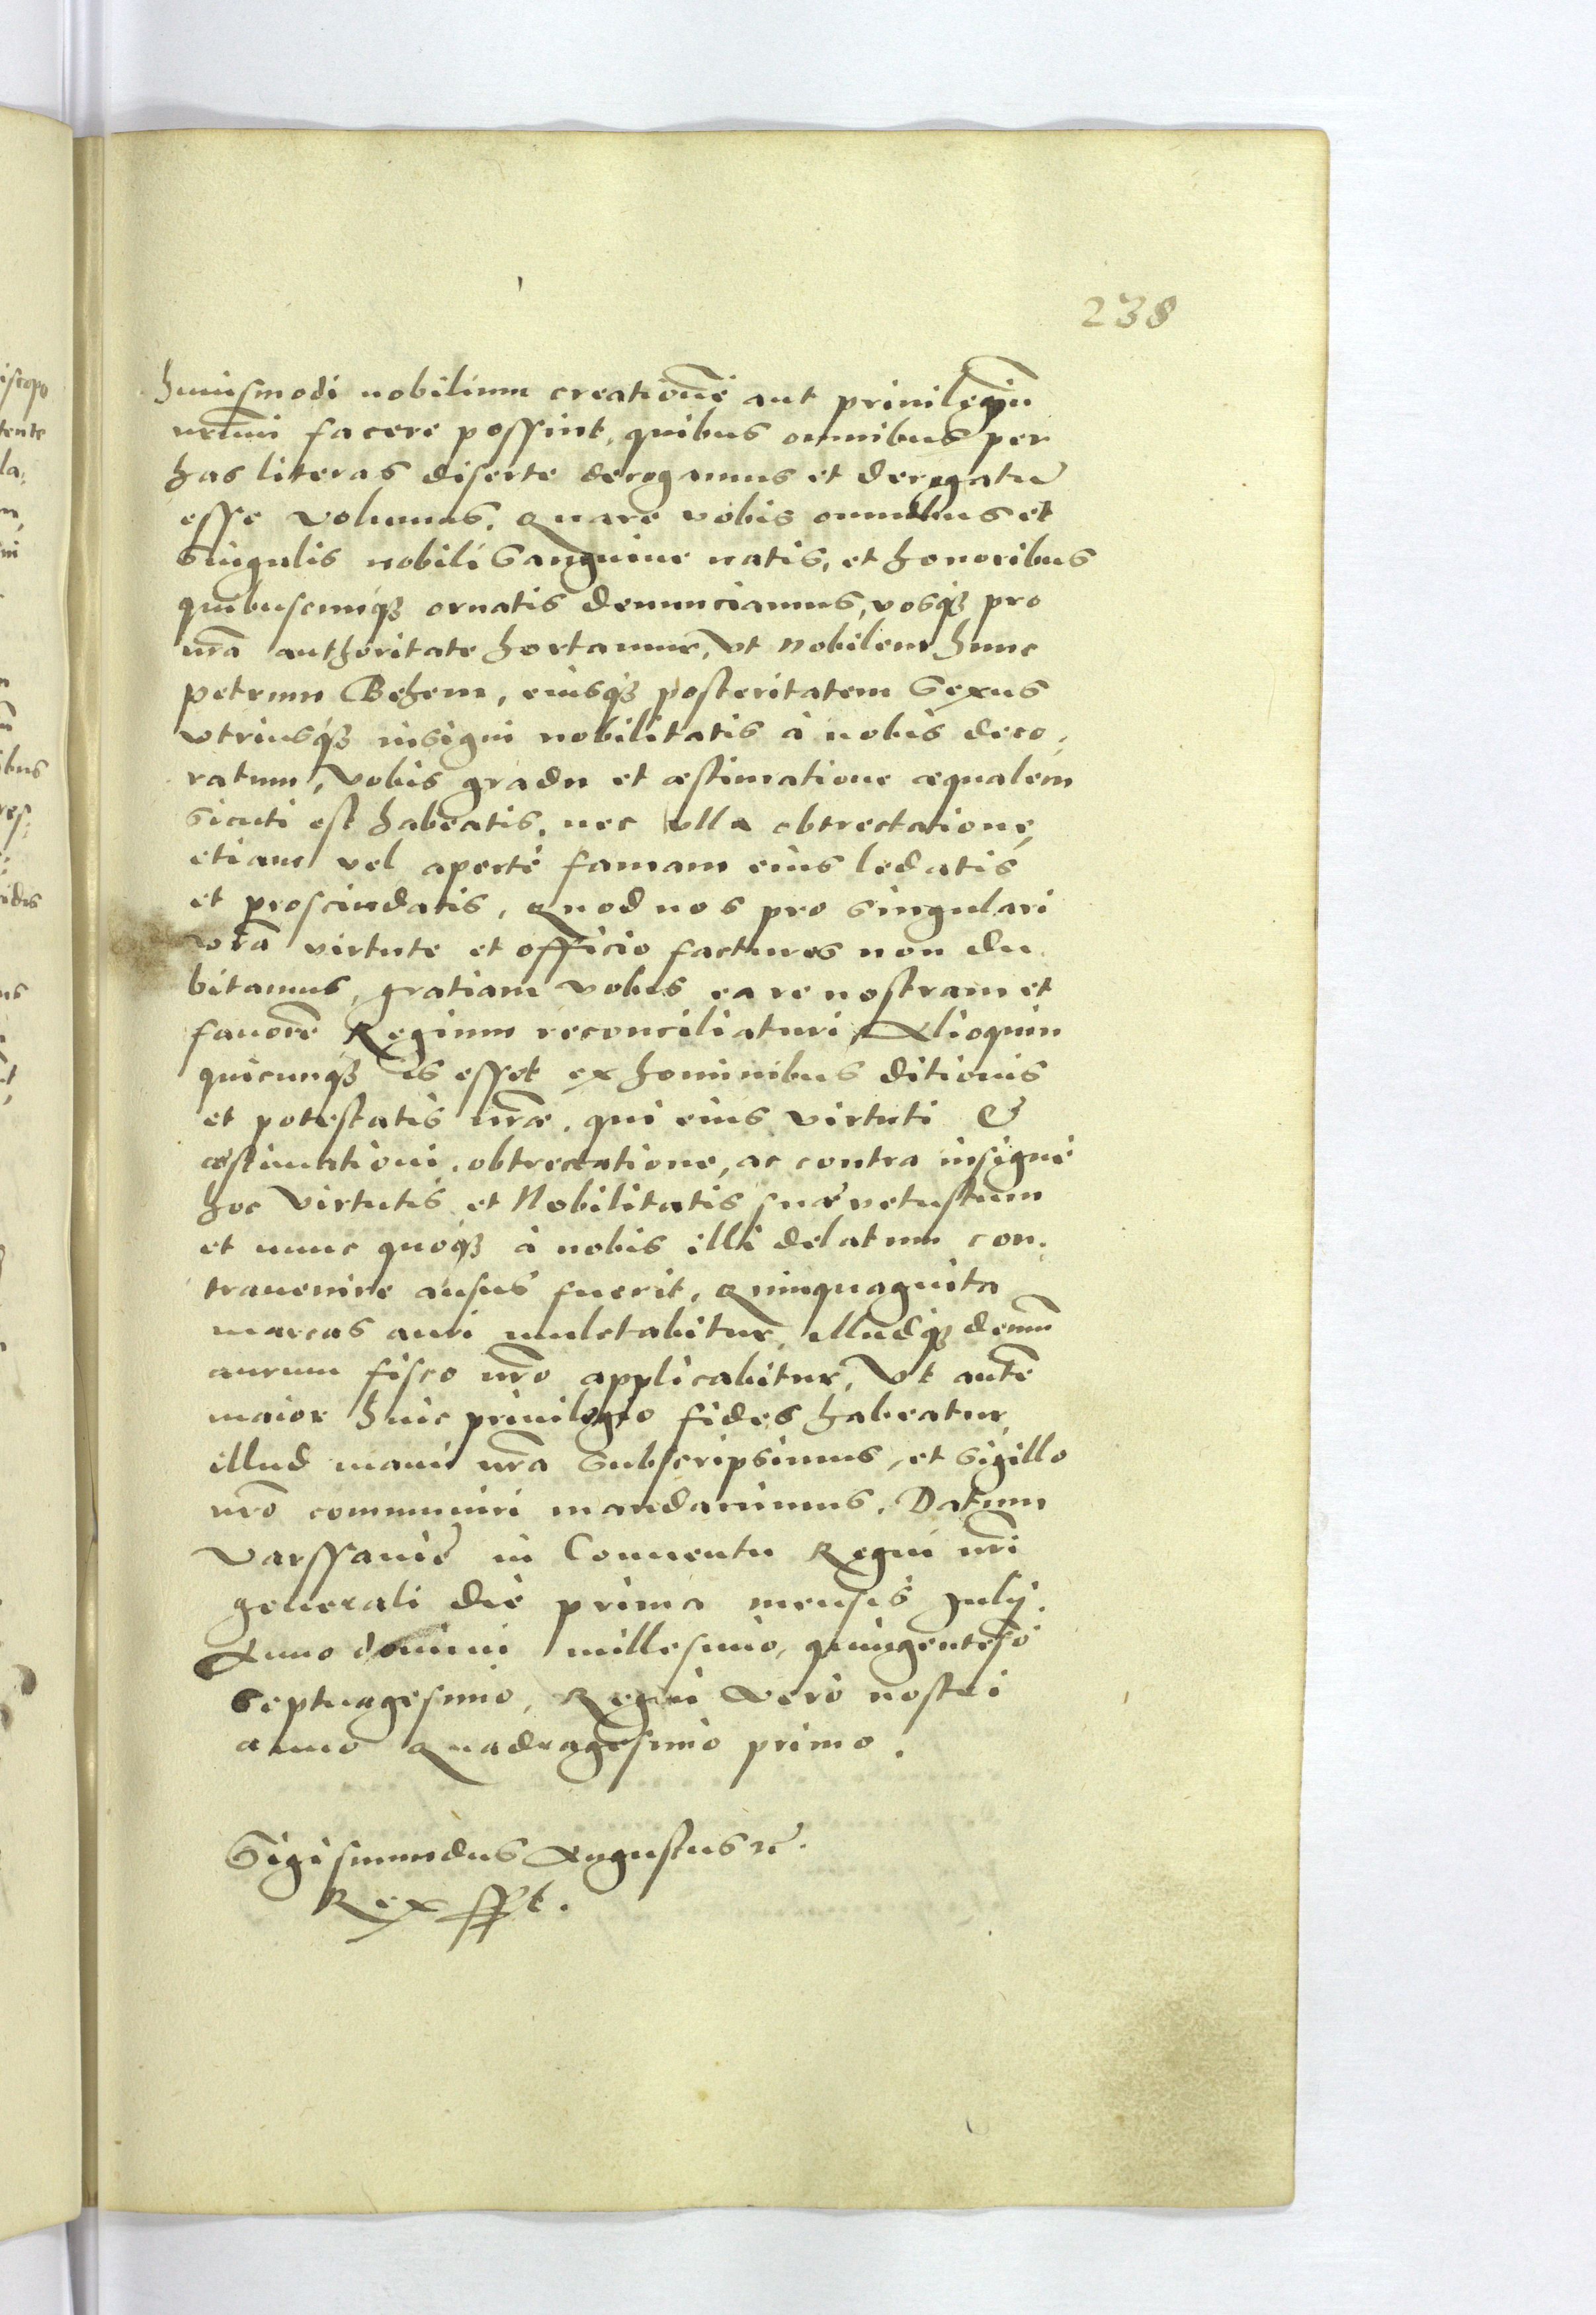 238
huiusmodi nobilium creationẽ aut priuilegiũ
nr̃um facere possint, quibus omnibus per
has literas diserte derogamus et derogatũ
esse volumus. Quare vobis omnibus et
singulis nobili sanguine natis, et honoribus
quibuscunqꝫ ornatis denunciamus, vosqꝫ pro
nr̃a authoritate hortamur, vt Nobilem hunc
Petrum Behem, eiusqꝫ posteritatem sexus
vtriusqꝫ insigni nobilitatis à nobis deco,
ratum, vobis gradu et æstimatione æqualem
sicuti est habeatis, nec vlla obtrectatione,
etiam vel aperte famam eius ledatis
et proscindatis, Quod nos pro singulari
vr̃a virtute et officio facturos non du
bitamus, gratiam vobis ea re nostram et
fauorẽ Regium reconciliaturi, Alioquin
quicunqꝫ is esset ex hominibus ditionis
et potestatis nr̃æ, qui eius virtuti &
æstimationi, obtrectatione, ac contra insigne
hoc virtutis et Nobilitatis suæ vetustum
et nunc quoqꝫ à nobis illi delatum con,
trauenire ausus fuerit, Quinquaginta
marcas auri mulctabitur, illudqꝫ demũ
aurum fisco nr̃o applicabitur, Vt autẽ
maior huic priuilegio fides habeatur
illud manu nr̃a subscripsimus, et sigillo
nr̃o communiri mandauimus. Datum
Varssauiẽ in Conuentu Regni nr̃i
generali die prima mensis Julij.
Anno domini millesimo, quingentesiõ
septuagesimo, Regni vero nostri
anno Quadragesimo primo.
Sigismundus Augustus
Rex sſpt.